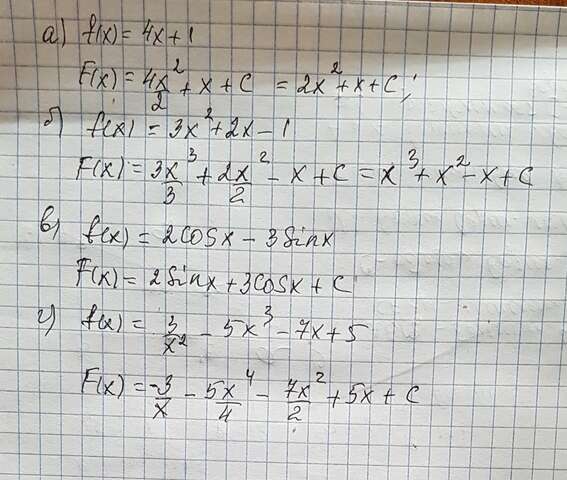 а) f(x) = 4x+1
F(x) = 4x²/2 + x + C = 2x² + x + C;
б) f(x) = 3x² + 2x − 1
F(x) = 3x³/3 + 2x²/2 − x + C = x³ + x² − x + C
в) f(x) = 2cosx − 3sinx
F(x) = 2sinx + 3cosx + C
г) f(x) = 3/x² − 5x³ − 7x + 5
F(x) = −3/x − 5x⁴/4 − 7x²/2 + 5x + C